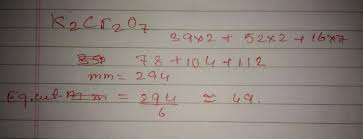 K2Cr2O7
39x2 + 52x2 + 16x7
78 + 104 + 112
mm = 294
Eq.wt = 294/6 ≈ 49.